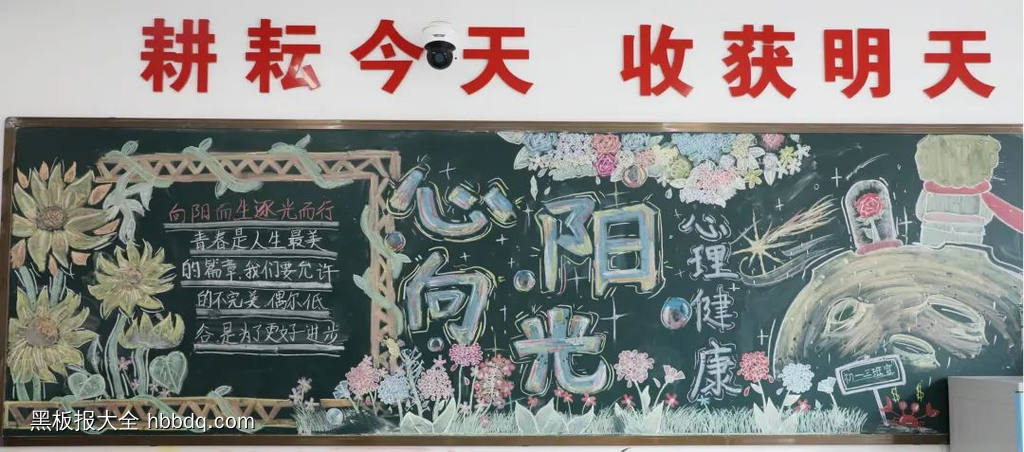 耕耘今天 收获明天
向阳而生逐光而行
青春是人生最美
的篇章,我们要允许
的不完美,偶尔低
谷,是为了更好进步
心向
阳光
心理健康
初一三班宣
黑板报大全 hbbdq.com